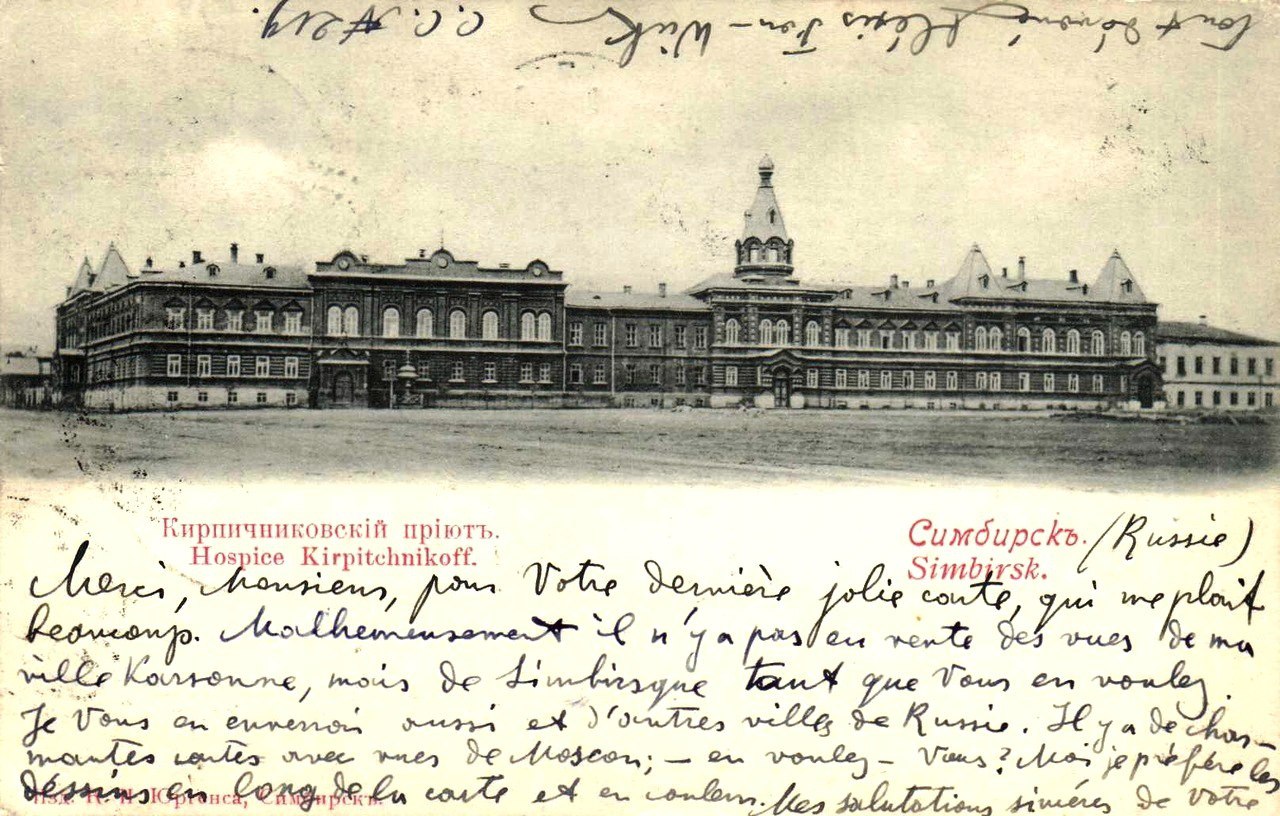 tout dévoué Alexis Fon-Wick
C.C. № 219.
Кирпичниковскій пріютъ.
Hospice Kirpitchnikoff.
Симбирскъ. (Russie)
Simbirsk.
Merci, Monsieur, pour Votre dernière jolie carte, qui me plait
beaucoup. Malheureusement il n'y a pas en vente des vues de ma
ville Karsonne, mais de Simbirsque tant que Vous en voulez.
Je Vous en enverrai aussi et d'autres villes de Russie. Il y a de char-
mantes cartes avec vues de Moscou; – en voulez-Vous? Moi je préfère les
dessins en long de la carte et en couleur. Mes salutations sincéres de Votre
Изд. Юргенса, Симбирскъ.